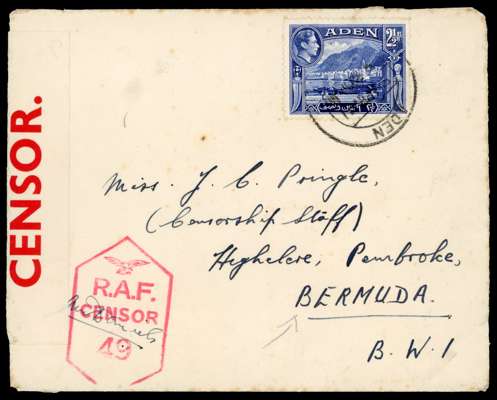 CENSOR.
ADEN
2½
ADEN
Miss. J. C. Pringle,
(Censorship Staff)
Highclere, Pembroke,
BERMUDA.
B. W. I
R.A.F.
CENSOR
49